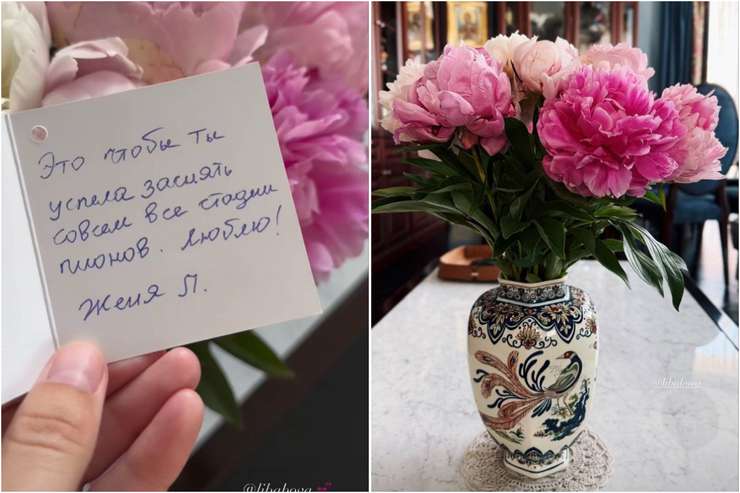 Это чтобы ты
успела заснять
совсем все стадии
пионов. Люблю!
Женя Л.
@libabova
@libabova